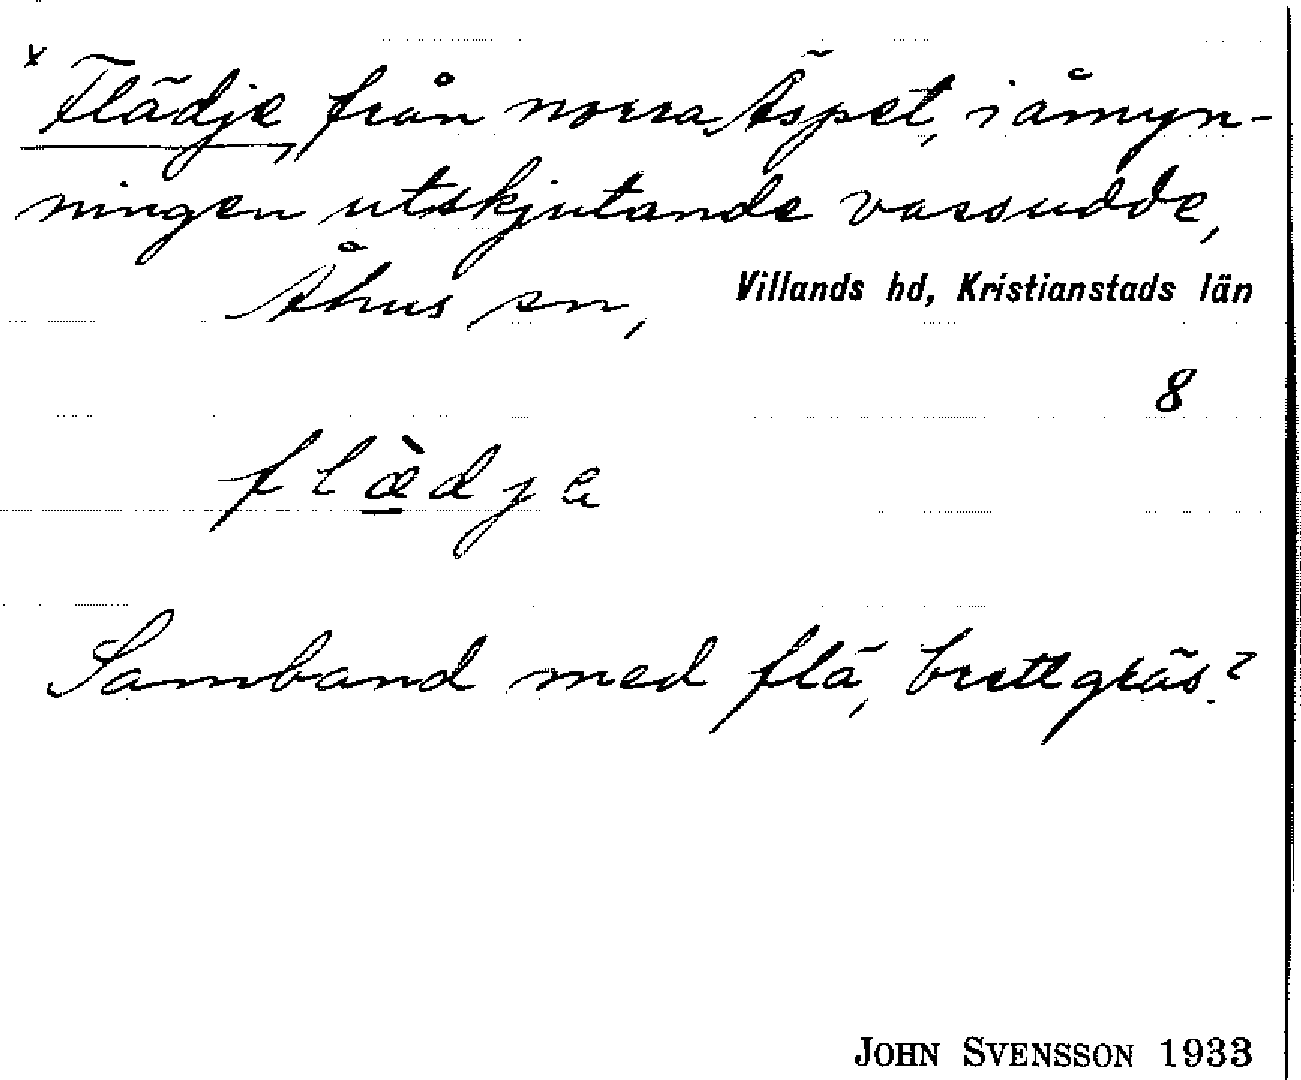 x Flädje, från norra Äspet, i åmyn-
ningen utskjutande vassudde,
Åhus sn, Villands hd, Kristianstads län
8
flæ̀dje
Samband med flä, brett gräs?
JOHN SVENSSON 1933